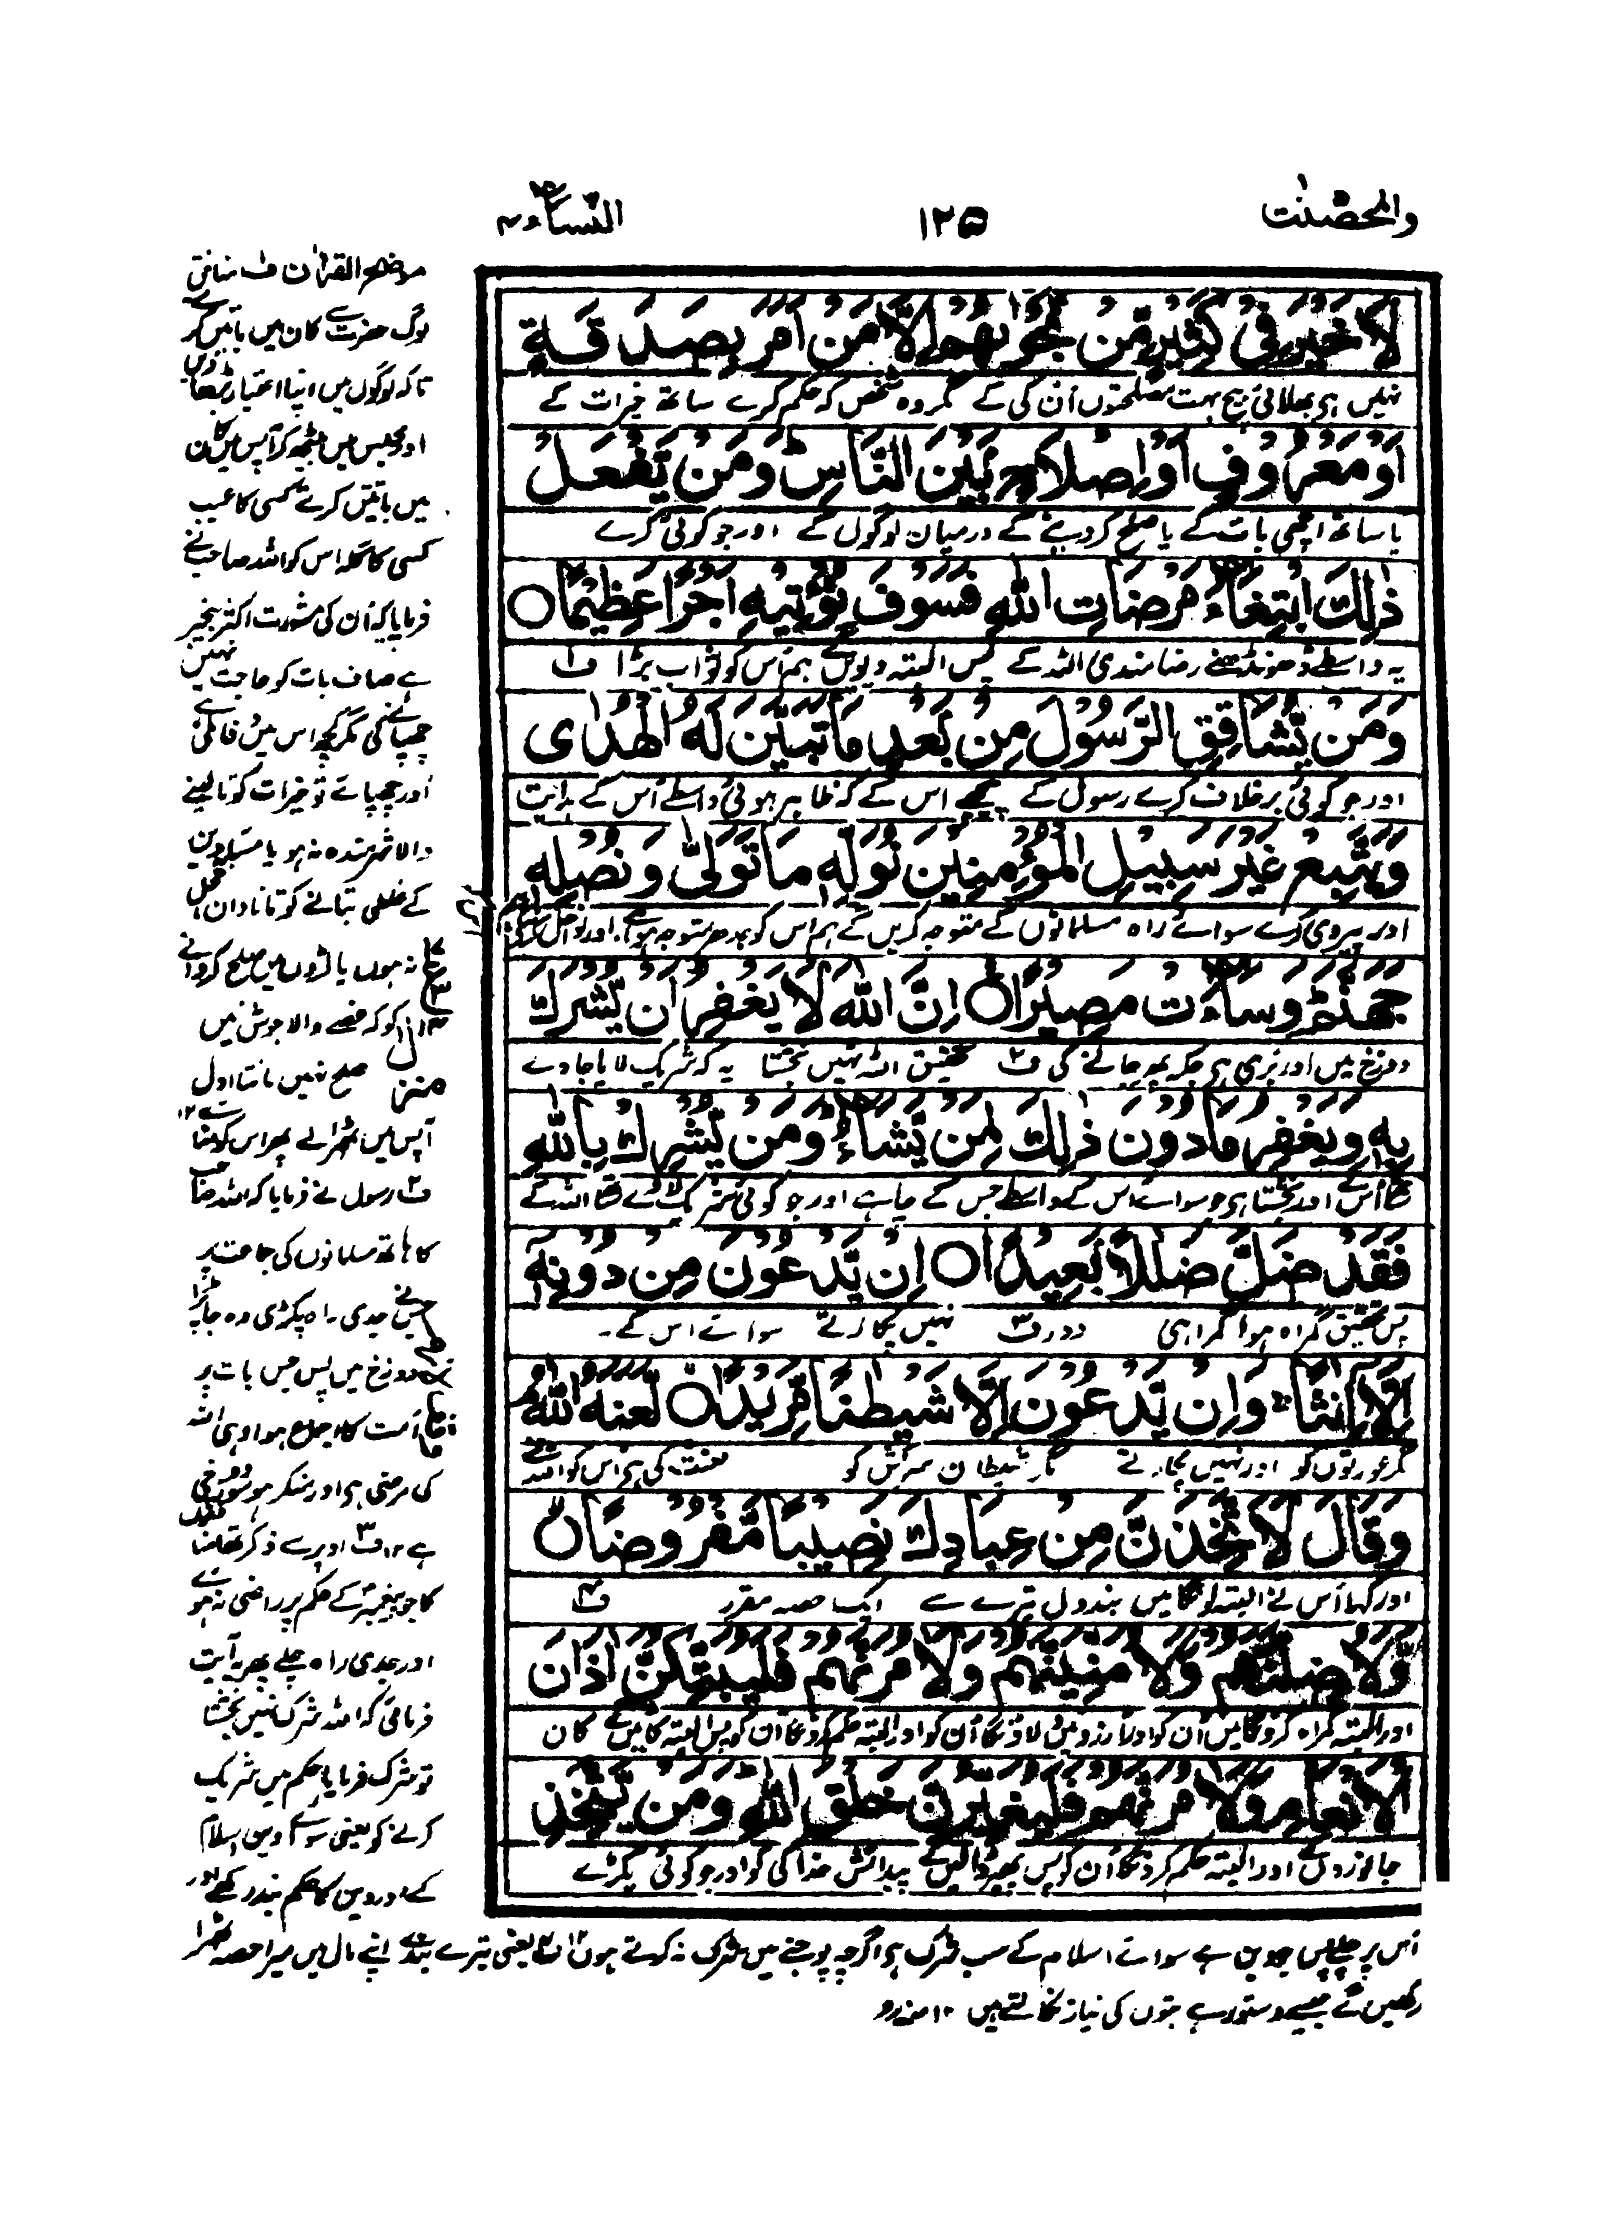 والمحصنٰت
١٢٥
النساء ٤
لَا خَيْرَ فِيْ كَثِيْرٍ مِّنْ نَّجْوٰىهُمْ اِلَّا مَنْ اَمَرَ بِصَدَقَةٍ
نہیں ہی بھلائی بیچ بہت مصلحتوں اُن کی کے مگر وہ شخص کہ حکم کرے ساتھ خیرات کے
اَوْ مَعْرُوْفٍ اَوْ اِصْلَاحٍ بَيْنَ النَّاسِ ؕ وَمَنْ يَّفْعَلْ
یا ساتھ اچھی بات کے یا صلح کر دینے کے درمیان لوگوں کے اور جو کوئی کرے
ذٰلِكَ ابْتِغَآءَ مَرْضَاتِ اللّٰهِ فَسَوْفَ نُؤْتِيْهِ اَجْرًا عَظِيْمًا ○
یہ واسطے ڈھونڈھنے رضا مندی اللہ کے پس البتہ دیویں گے ہم اُس کو ثواب بڑا ف۱
وَمَنْ يُّشَاقِقِ الرَّسُوْلَ مِنْۢ بَعْدِ مَا تَبَيَّنَ لَهُ الْهُدٰى
اور جو کوئی برخلاف کرے رسول کے پیچھے اس کے کہ ظاہر ہوئی واسطے اُس کے ہدایت
وَيَتَّبِعْ غَيْرَ سَبِيْلِ الْمُؤْمِنِيْنَ نُوَلِّهٖ مَا تَوَلّٰى وَنُصْلِهٖ
اور پیروی کرے سوائے راہ مسلمانوں کے متوجہ کریں گے ہم اس کو جدھر متوجہ ہوا ہے اور
جَهَنَّمَ ؕ وَسَآءَتْ مَصِيْرًا ○ اِنَّ اللّٰهَ لَا يَغْفِرُ اَنْ يُّشْرَكَ
دوزخ میں اور بُری ہی جگہ پھر جانے کی ف۲ تحقیق اللہ نہیں بخشتا یہ کہ شریک لایا جاوے
بِهٖ وَيَغْفِرُ مَا دُوْنَ ذٰلِكَ لِمَنْ يَّشَآءُ ؕ وَمَنْ يُّشْرِكْ بِاللّٰهِ
ساتھ اُس کے اور بخشتا ہی جو سوائے اس کے واسطے جس کے چاہے اور جو کوئی شریک لاوے ساتھ اللہ کے
فَقَدْ ضَلَّ ضَلٰلًۢا بَعِيْدًا ○ اِنْ يَّدْعُوْنَ مِنْ دُوْنِهٖۤ
پس تحقیق گمراہ ہوا گمراہی دور ف۳ نہیں پکارتے سوائے اس کے۔
اِلَّاۤ اِنٰثًا ۚ وَاِنْ يَّدْعُوْنَ اِلَّا شَيْطٰنًا مَّرِيْدًا ۙ لَّعَنَهُ اللّٰهُ ۘ
مگر عورتوں کو اور نہیں پکارتے مگر شیطان سرکش کو لعنت کی ہی اُس کو اللہ نے
وَقَالَ لَاَتَّخِذَنَّ مِنْ عِبَادِكَ نَصِيْبًا مَّفْرُوْضًا ۙ
اور کہا اُس نے البتہ لوں گا میں بندوں تیرے سے ایک حصہ مقرر ف۴
وَّلَاُضِلَّنَّهُمْ وَلَاُمَنِّيَنَّهُمْ وَلَاٰمُرَنَّهُمْ فَلَيُبَتِّكُنَّ اٰذَانَ
اور البتہ گمراہ کروں گا میں اُن کو اور آرزو میں لاؤں گا اُن کو اور البتہ حکم کروں گا اُن کو پس البتہ کاٹیں گے کان
الْاَنْعَامِ وَلَاٰمُرَنَّهُمْ فَلَيُغَيِّرُنَّ خَلْقَ اللّٰهِ ؕ وَمَنْ يَّتَّخِذِ
جانوروں کے اور البتہ حکم کروں گا اُن کو پس پھیر ڈالیں گے پیدائش خدا کی کو اور جو کوئی پکڑے
موضح القراٰن ف۱ منافق
لوگ حضرت سے کان میں باتیں کرتے
تا کہ لوگوں میں اپنا اعتبار بڑھاویں
اور مجلس میں بیٹھ کر آپس میں کان
میں باتیں کرتے کسی کا عیب
کسی کا گلہ اس کو اللہ صاحب نے
فرمایا کہ اُن کی مشورت اکثر بخیر نہیں
ہے صاف بات کو حاجت
چھپانے کی مگر کچھ اس میں
اور چھپائے تو خیرات کو تا لینے
والا شرمندہ نہ ہو یا مسئلہ دین
کے غلطی بتانے کو تا نادان خجل
نہ ہوں یا لڑوں میں صلح کروانے
کو کہ غصے والا جوش میں
صلح نہیں مانتا اول
منزل
آپس میں پھر اس کو
ف۲ رسول نے فرمایا کہ اللہ صاحب
کا ہاتھ مسلمانوں کی جماعت پر
جس نے جدی راہ پکڑی وہ جا پڑا
دوزخ میں پس جس بات پر
اُمت کا اجماع ہوا وہی اللہ
کی مرضی ہی اور منکر ہو سو دوزخی
ہے ۱۲ ف۳ اوپر سے ذکر تھا
کا جو پیغمبر کے حکم پر راضی نہ ہوئے
اور جدی راہ چلے پھر یہ آیت
فرمائی کہ اللہ شرک نہیں بخشتا
تو شرک فرمایا حکم میں شریک
کرنے کو یعنی سوائے دین اسلام
کے اور دین کا حکم پسند رکھے اور
اُس پر چلے پس جو دین ہے سوائے اسلام کے سب شرک ہی اگرچہ پوجنے میں شرک نہ کرتے ہوں ۱۲ ف۴ یعنی تیرے بندے اپنے مال میں میرا حصہ ٹھرا
رکھیں گے جیسے دستور ہے بتوں کی نیاز نکالتے ہیں ۱۲ منہ رہ